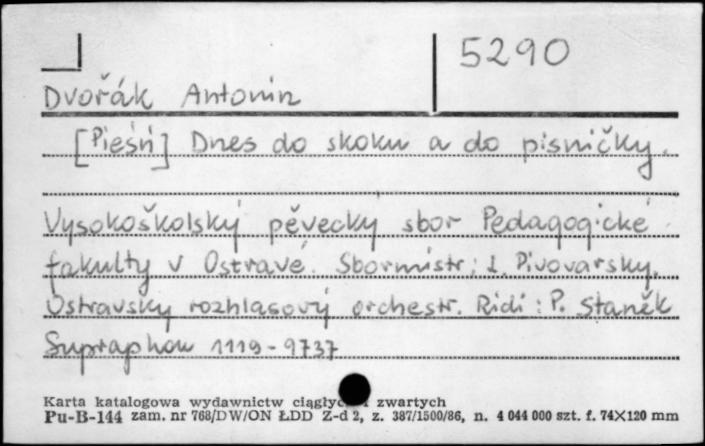 5290
Dvořák Antonin
[Pieśń] Dnes do skoku a do pisničky.
Vysokoškolský pěvecky sbor Pedagogické
fakulty v Ostravé. Sbormistr: L. Pivovarsky.
Ostravsky rozhlasový orchestr. Ridi: P. Staněk
Supraphon 1119-9737
Karta katalogowa wydawnictw ciągłyc i zwartych
Pu-B-144 zam. nr 768/DW/ON ŁDD Z-d 2, z. 387/1500/86, n. 4 044 000 szt. f. 74×120 mm